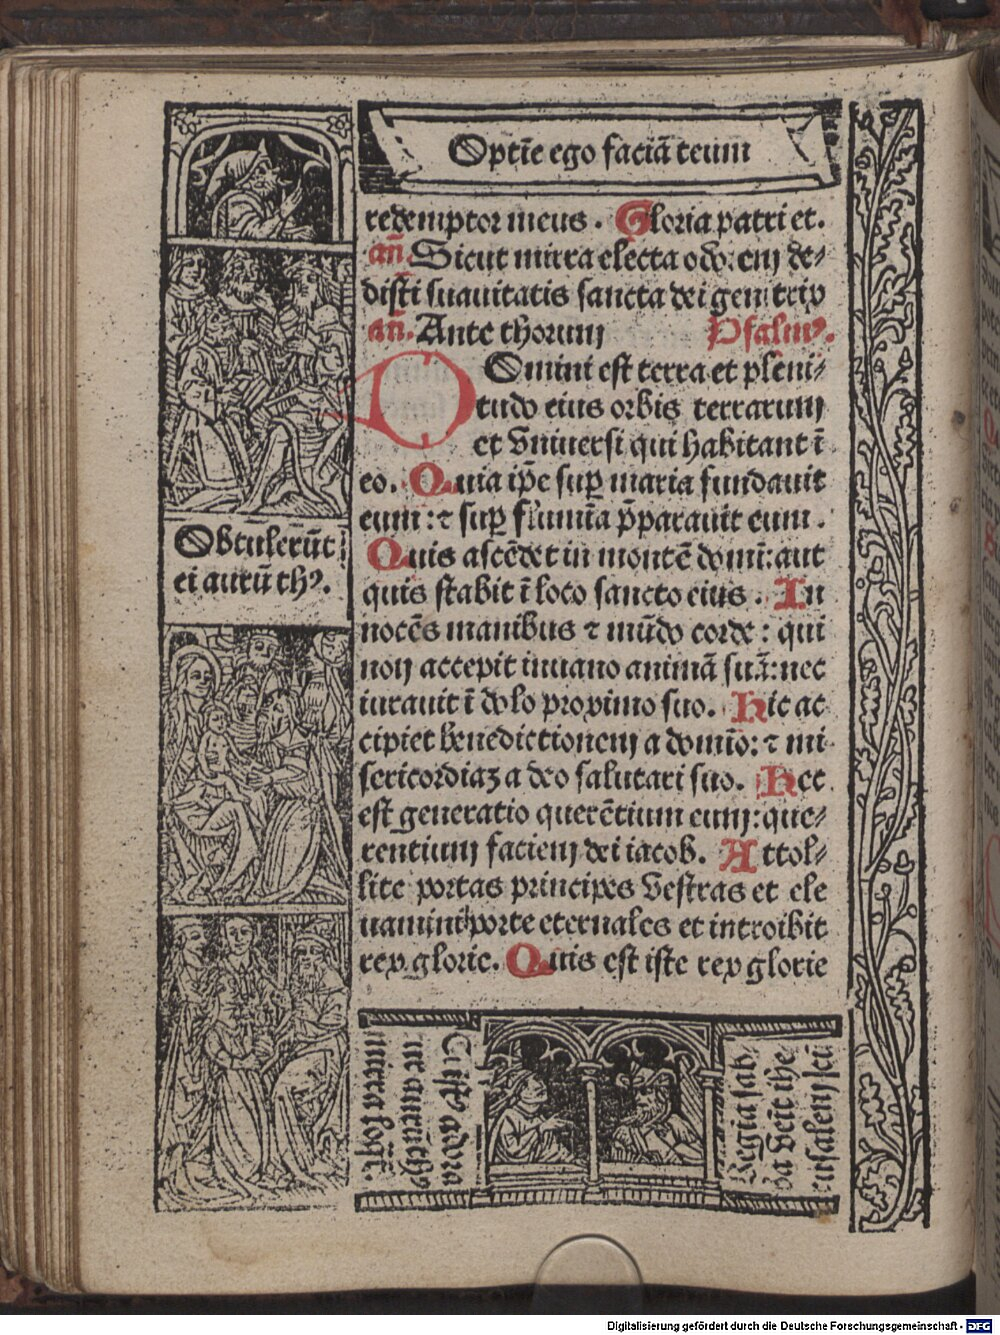 Optīe ego faciā teum
redemptor meus. Gloria patri et.
an̄. Sicut mirra electa odorem de⸗
disti suauitatis sancta dei genitrix
an̄. Ante thorum Psalmꝰ.
Omini est terra et pleni⸗
tudo eius orbis terrarum
et vniuersi qui habitant ī
eo. Quia ip̄e suꝑ maria fundauit
eum: ⁊ suꝑ flumīa p̄parauit eum.
Quis ascēdet in montē domī: aut
quis stabit ī loco sancto eius. In
nocēs manibus ⁊ mūdo corde: qui
non accepit inuano animā suā: nec
iurauit ī dolo proximo suo. Hic ac
cipiet benedictionem a domīo: ⁊ mi
sericordiaꝫ a deo salutari suo. Hec
est generatio querētium eum: que⸗
rentium faciem dei iacob. Attol⸗
lite portas principes vestras et ele
uamini porte eternales et introibit
rex glorie. Quis est iste rex glorie
Obtulerūt
ei aurū thꝰ.
Regia sab
ba venit ihe
rusalem
Digitalisierung gefördert durch die Deutsche Forschungsgemeinschaft - DFG